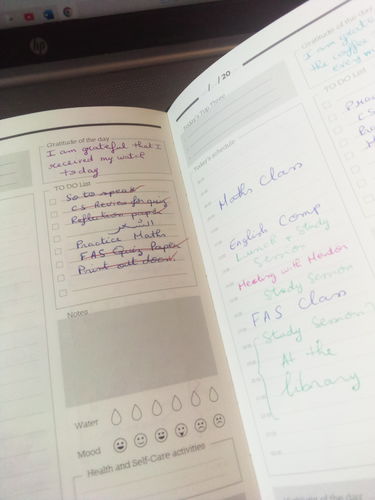 hp
Gratitude of the day
I am grateful that I
received my watch
today
TO DO List
So to speak
CS Review for quiz
Reflection paper
Practice Maths
FAS Quiz Paper
Print out door
Notes
Water
Mood
Health and Self-Care activities
/ /20
Today's Top Three
Today's schedule
Maths Class
English Comp
Lunch + Study
Session
Meeting with Mentor
Study Session
FAS Class
Study Session
At the
library
Gratitude of the day
I am grateful
the coffee
every m
TO DO List
Prac
CS